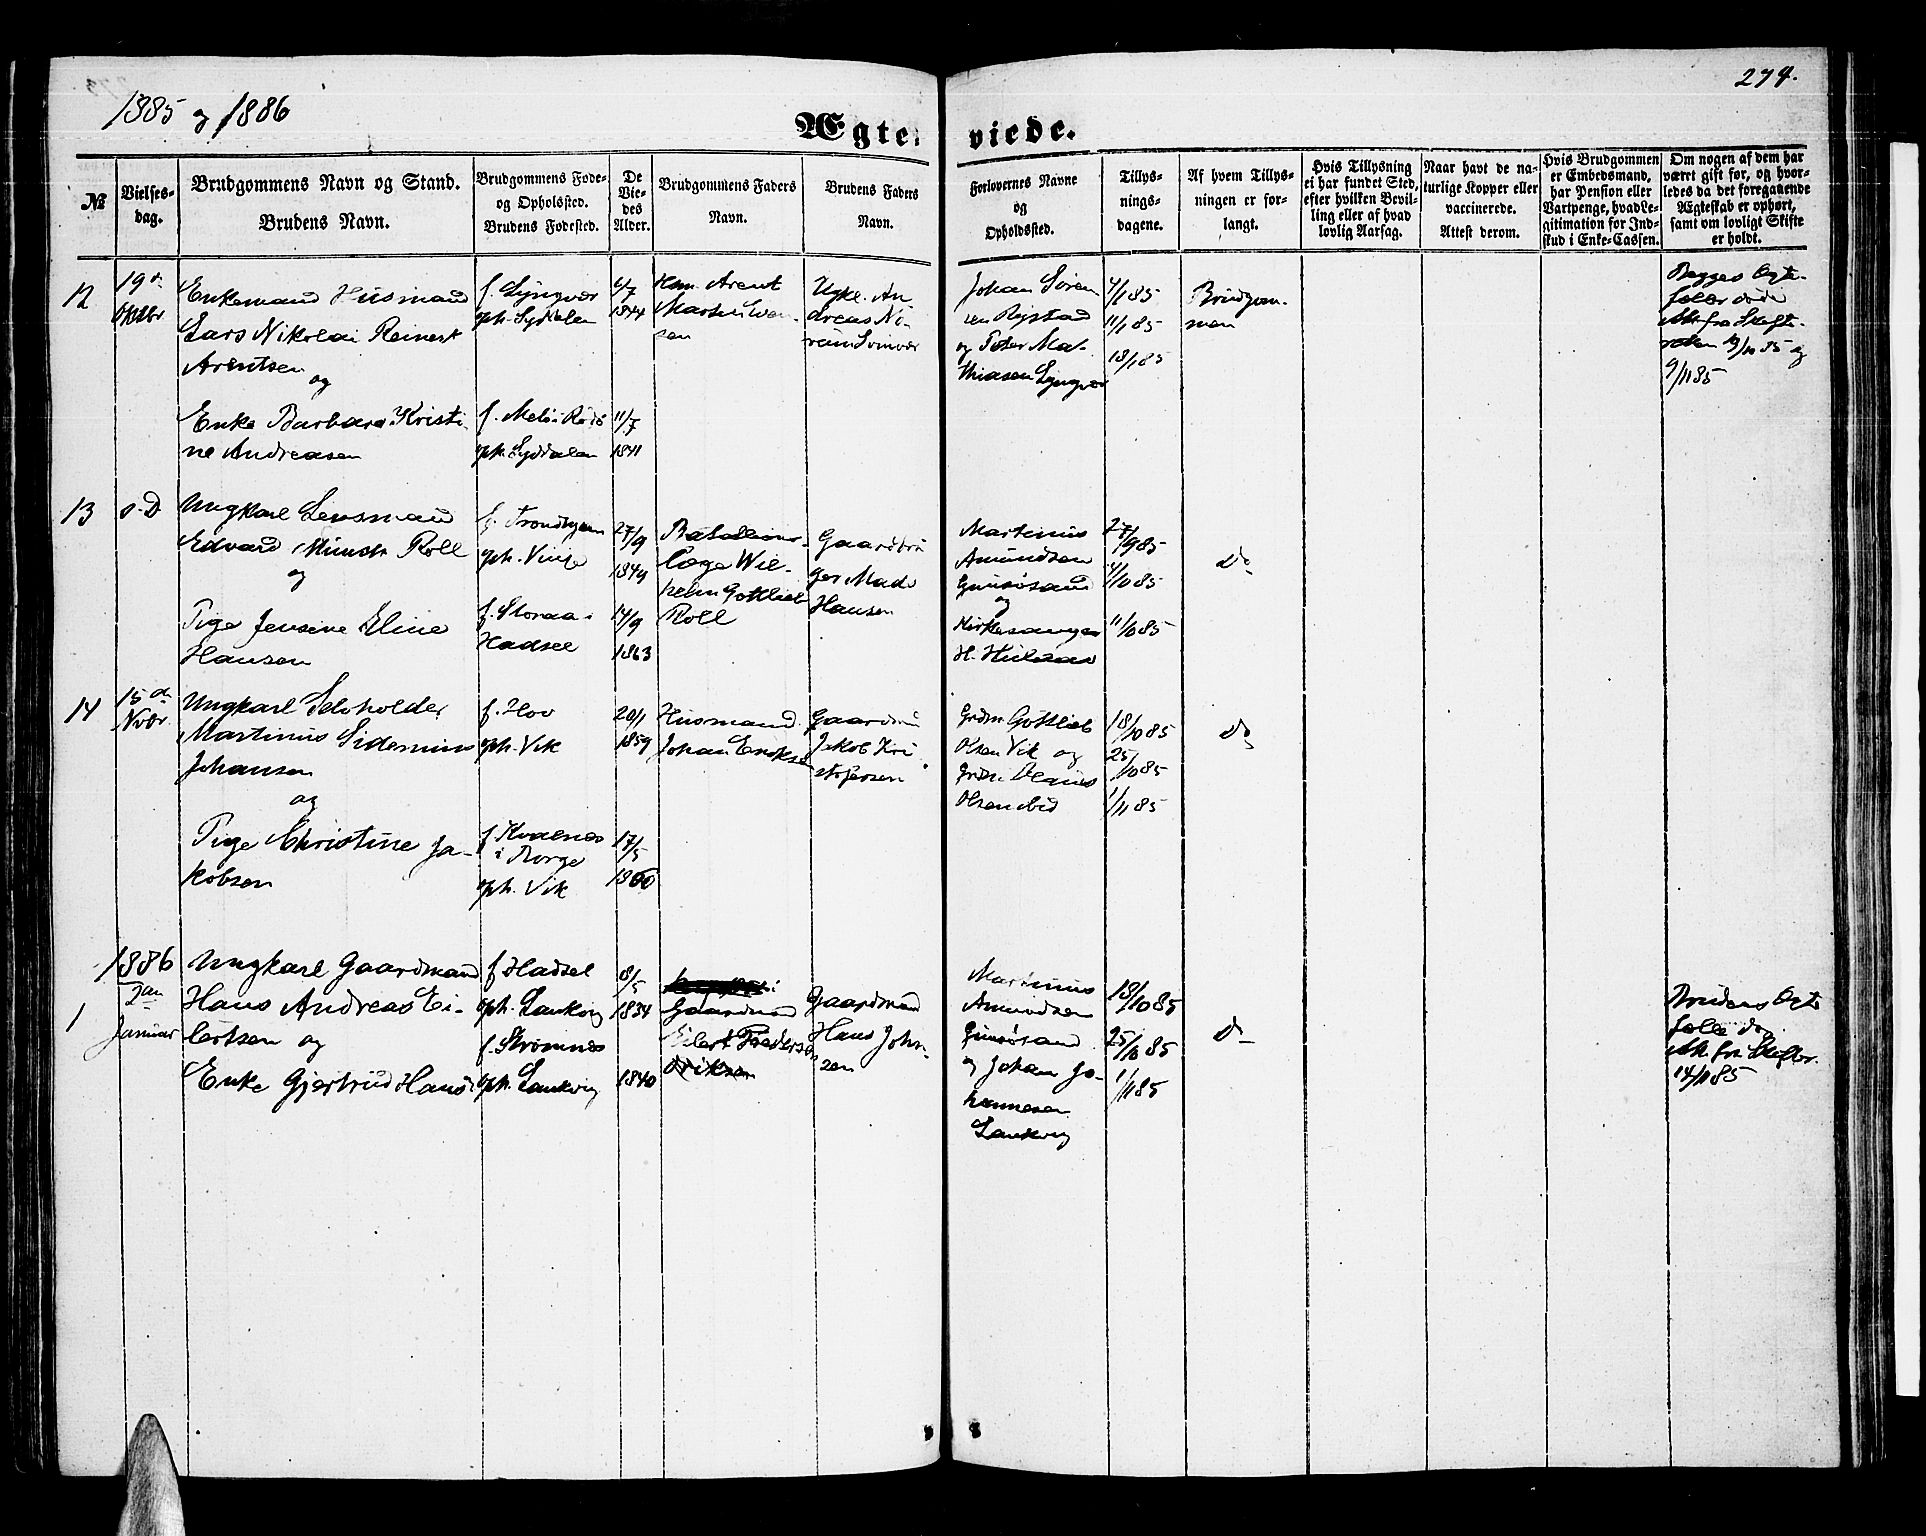 1885 og 1886
274.
Ægte-
viede.
№
Vielses-
dag.
Brudgommens Navn og Stand.
Brudens Navn.
Brudgommens Føde-
og Opholssted.
Brudens Fødested.
De
Vie-
des
Alder.
Brudgommens Faders
Navn.
Brudens Faders
Navn.
Forlovernes Navne
og
Opholdssted.
Tillys-
nings-
dagene.
Af hvem Tillys-
ningen er for-
langt.
Hvis Tillysning
ei har fundet Sted,
efter hvilken Bevil-
ling eller af hvad
lovlig Aarsag.
Naar havt de na-
turlige Kopper eller
vaccinerede.
Attest derom.
Hvis Brudgommen
er Embedsmand,
har Pension eller
Vartpenge, hvad Le-
gitimation for Ind-
skud i Enke-Cassen.
Om nogen af dem har
været gift før, og hvor-
ledes da det foregaaende
Ægteskab er ophørt,
samt om lovligt Skifte
er holdt.
12
19de
Oktbr
Enkemand Husmand
Lars Nikolai Reinert
Arentsen
og
Enke Barbara Kristi-
ne Andreasen
f. Lyngvær
oph. Sydalen
f. Melø i Rødø
oph. Sydalen
6/7
1844
11/7
1841
Hsm. Arent
Martin
sen
Ugkl. An
dreas
Johan Søren
sen Rystad
og Peter Ma-
thiasen Lyngvær
4/1 85
11/1 85
18/1 85
Brudgom-
men
Begges Ægte-
fæller døde
Att. fra Skifte-
retten 19/10 85 og
9/11 85
13
s. D
Ungkarl Lensmand
Edvard Munch Roll
og
Pige Jensine Eline
Hansen
f. Trondhjem
oph. Vinje
f. Storaa-
Hadsel
27/9
1849
14/9
1863
Batallions-
læge Wil-
helm Gottlieb
Roll
Gaardbru
ger Mads
Hansen
Martinus
Amundsen
Gimsøsand
og
Kirkesanger
H.
27/9 85
4/10 85
11/10 85
do
14
15de
Nvbr.
Ungkarl Selvholder
Martinus Sidenius
Johansen
og
Pige Christine Ja-
kobsen
f. Hov
oph. Vik
f. Kvalnes
i Borge
oph. Vik
20/1
1859
17/5
1860
Husmand
Johan Enoksen
Gaardm
Jakob Kri
stofersen
Grdm. Gottlieb
Olsen Vik og
Grdm. Olaus
Olsen ibid
18/10 85
25/10 85
1/11 85
do
1886
1
2den
Januar
Ungkarl Gaardmand
Hans Andreas Ei-
lertsen og
Enke Gjertrud Hans
f. Hadsel
oph. Saukvig
f. Strømnes
oph. Saukvig
8/5
1834
1840
Gaardmand
Eilert Pedersen
Gaardmand
Hans John-
sen
Martinus
Amundsen
Gimsøsand
og Johan Jo-
hannesen
Saukvig
18/10 85
25/10 85
1/11 85
do
Brudens Ægte
fælle død
Att. fra Skifter.
14/11 85